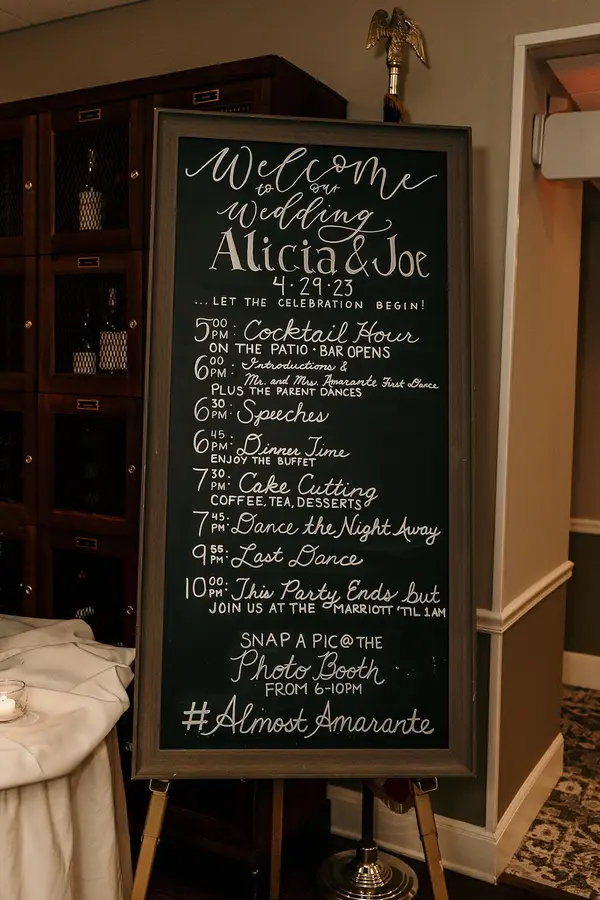 Welcome
to our
Wedding
Alicia & Joe
4·29·23
...LET THE CELEBRATION BEGIN!
5:00 PM: Cocktail Hour
ON THE PATIO · BAR OPENS
6:00 PM: Introductions &
Mr. and Mrs. Amarante First Dance
PLUS THE PARENT DANCES
6:30 PM: Speeches
6:45 PM: Dinner Time
ENJOY THE BUFFET
7:30 PM: Cake Cutting
COFFEE, TEA, DESSERTS
7:45 PM: Dance the Night Away
9:55 PM: Last Dance
10:00 PM: This Party Ends but
JOIN US AT THE MARRIOTT 'TIL 1AM
SNAP A PIC @ THE
Photo Booth
FROM 6-10PM
#AlmostAmarante